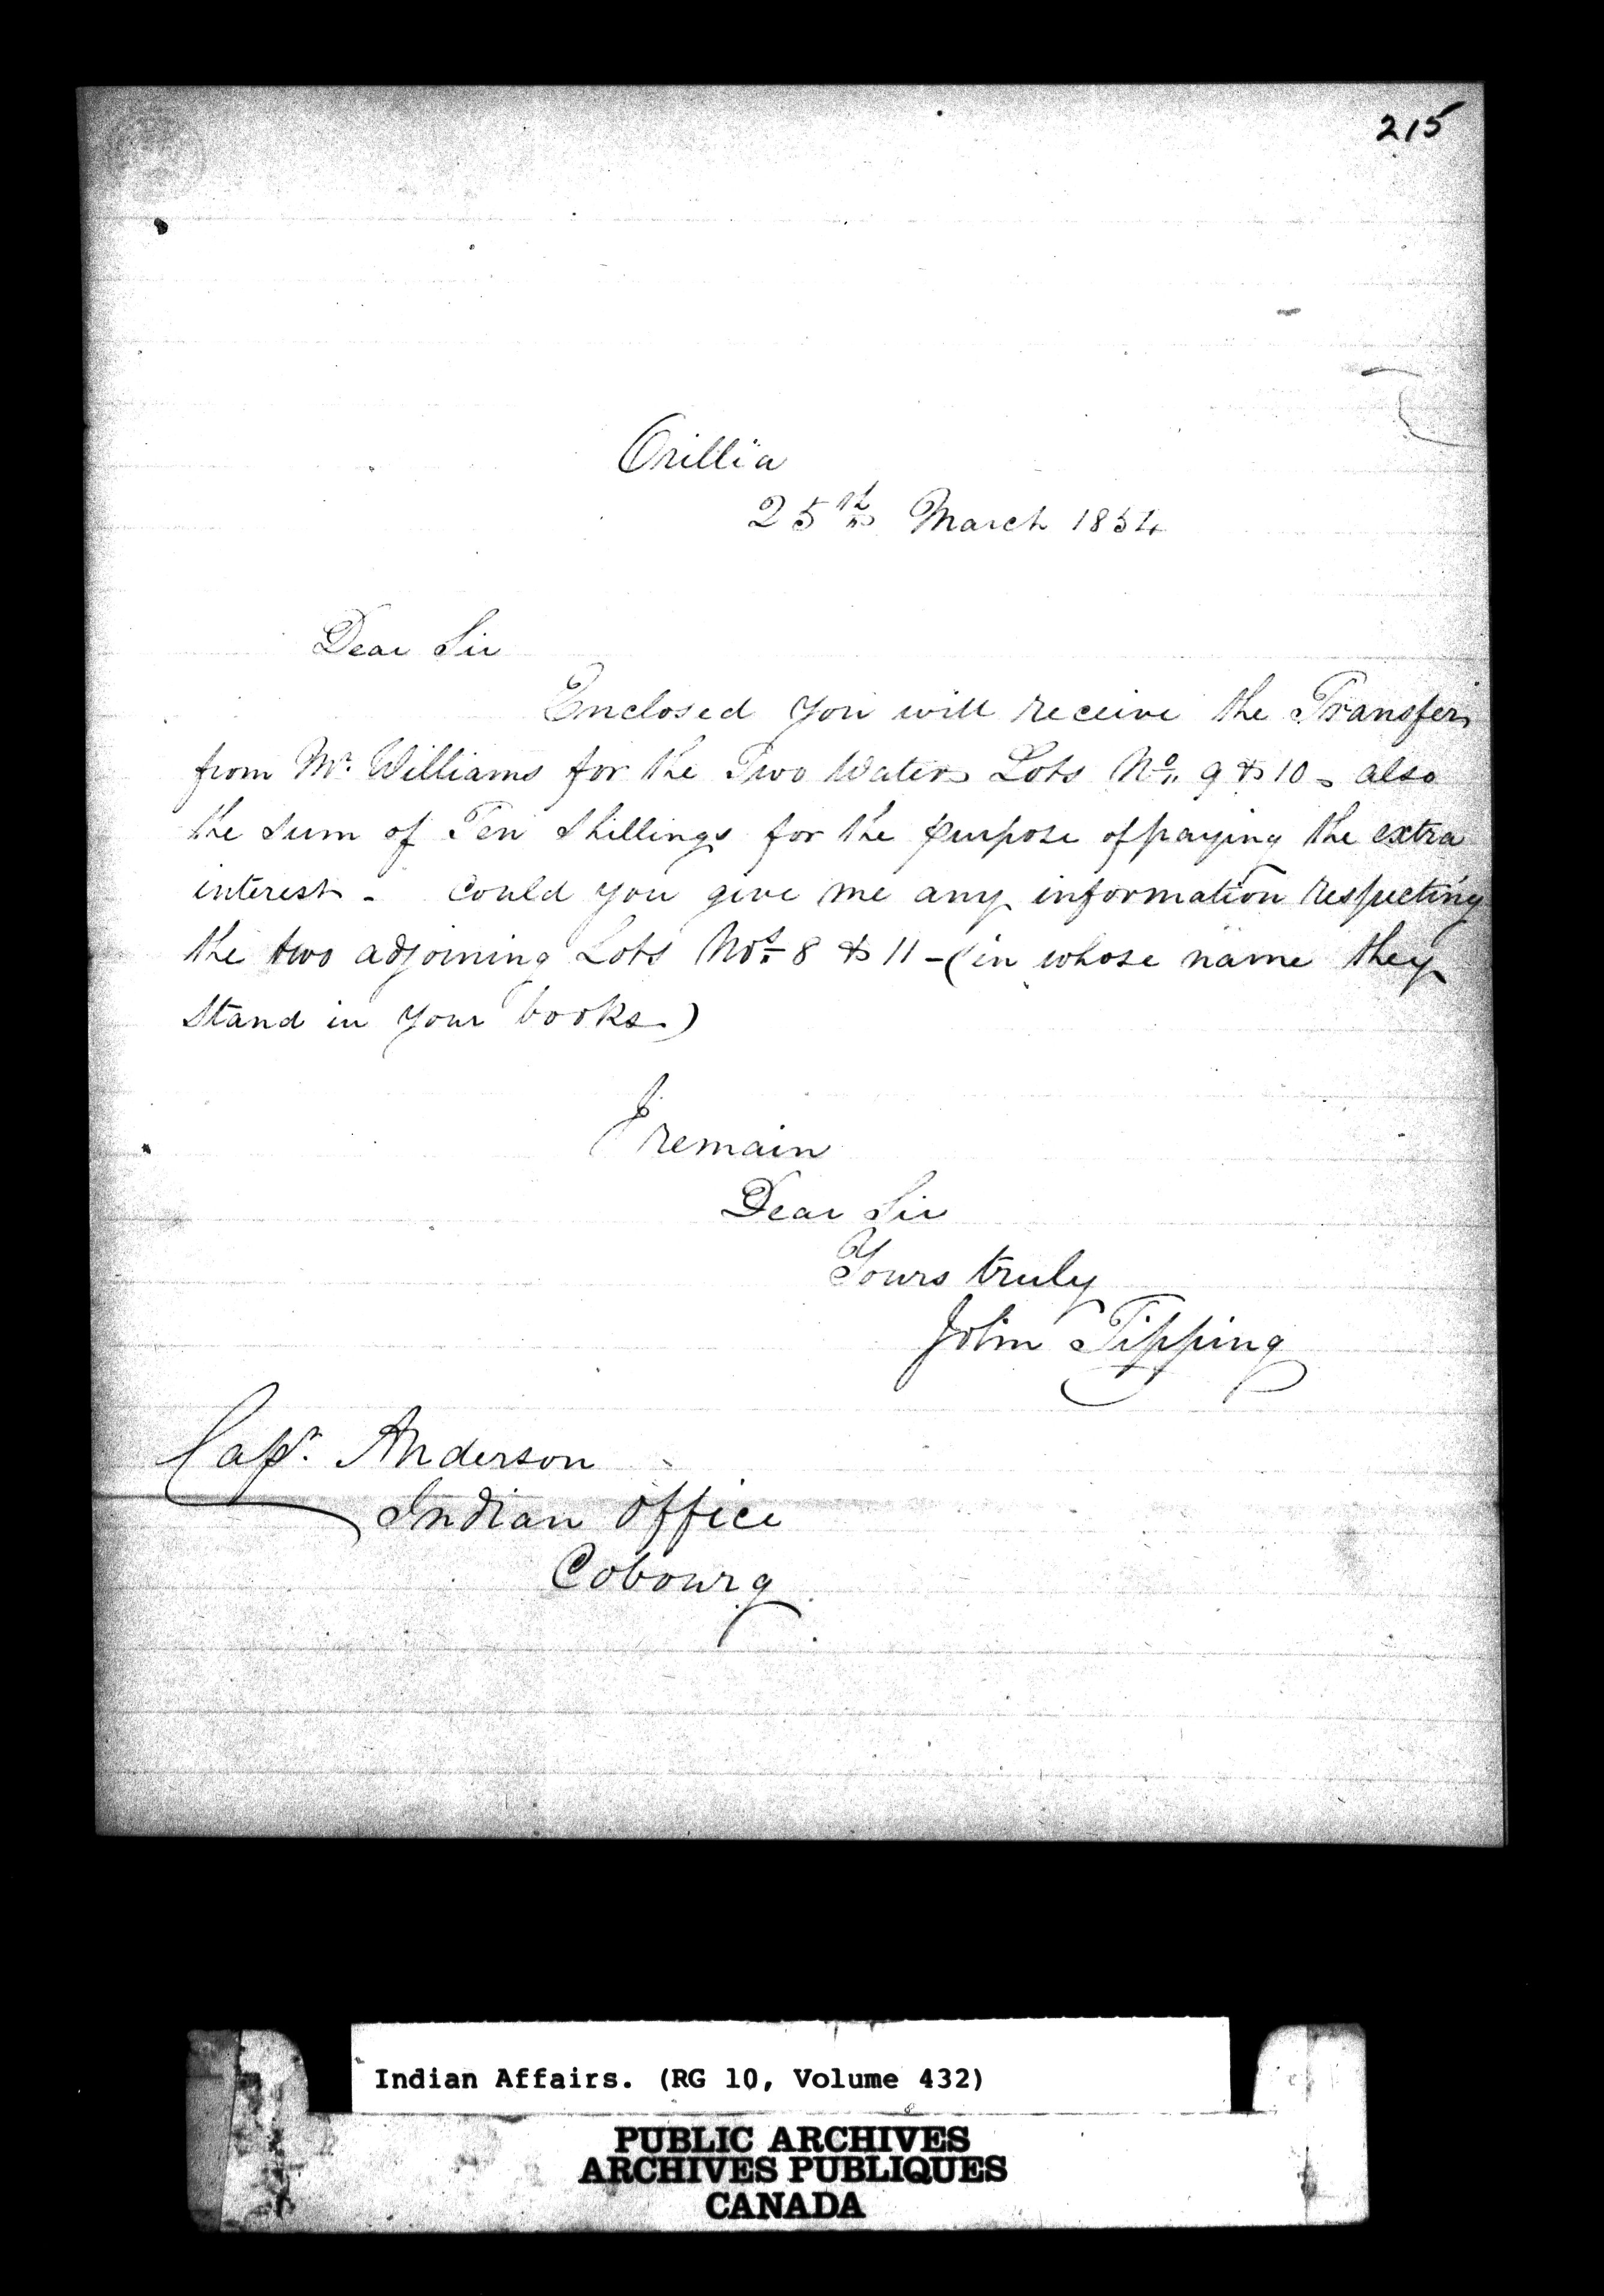 215
Orillia
25th March 1854
Dear Sir
Enclosed you will receive the Transfer
from Mr. Williams for the Two Water Lots No. 9 & 10 - also
the sum of Ten Shillings for the purpose of paying the extra
interest - Could you give me any information respecting
the two adjoining Lots Nos. 8 & 11 - (in whose name they
stand in your books)
I remain
Dear Sir
Yours truly
John Tipping
Capt. Anderson
Indian Office
Cobourg
Indian Affairs. (RG 10, Volume 432)
PUBLIC ARCHIVES
ARCHIVES PUBLIQUES
CANADA